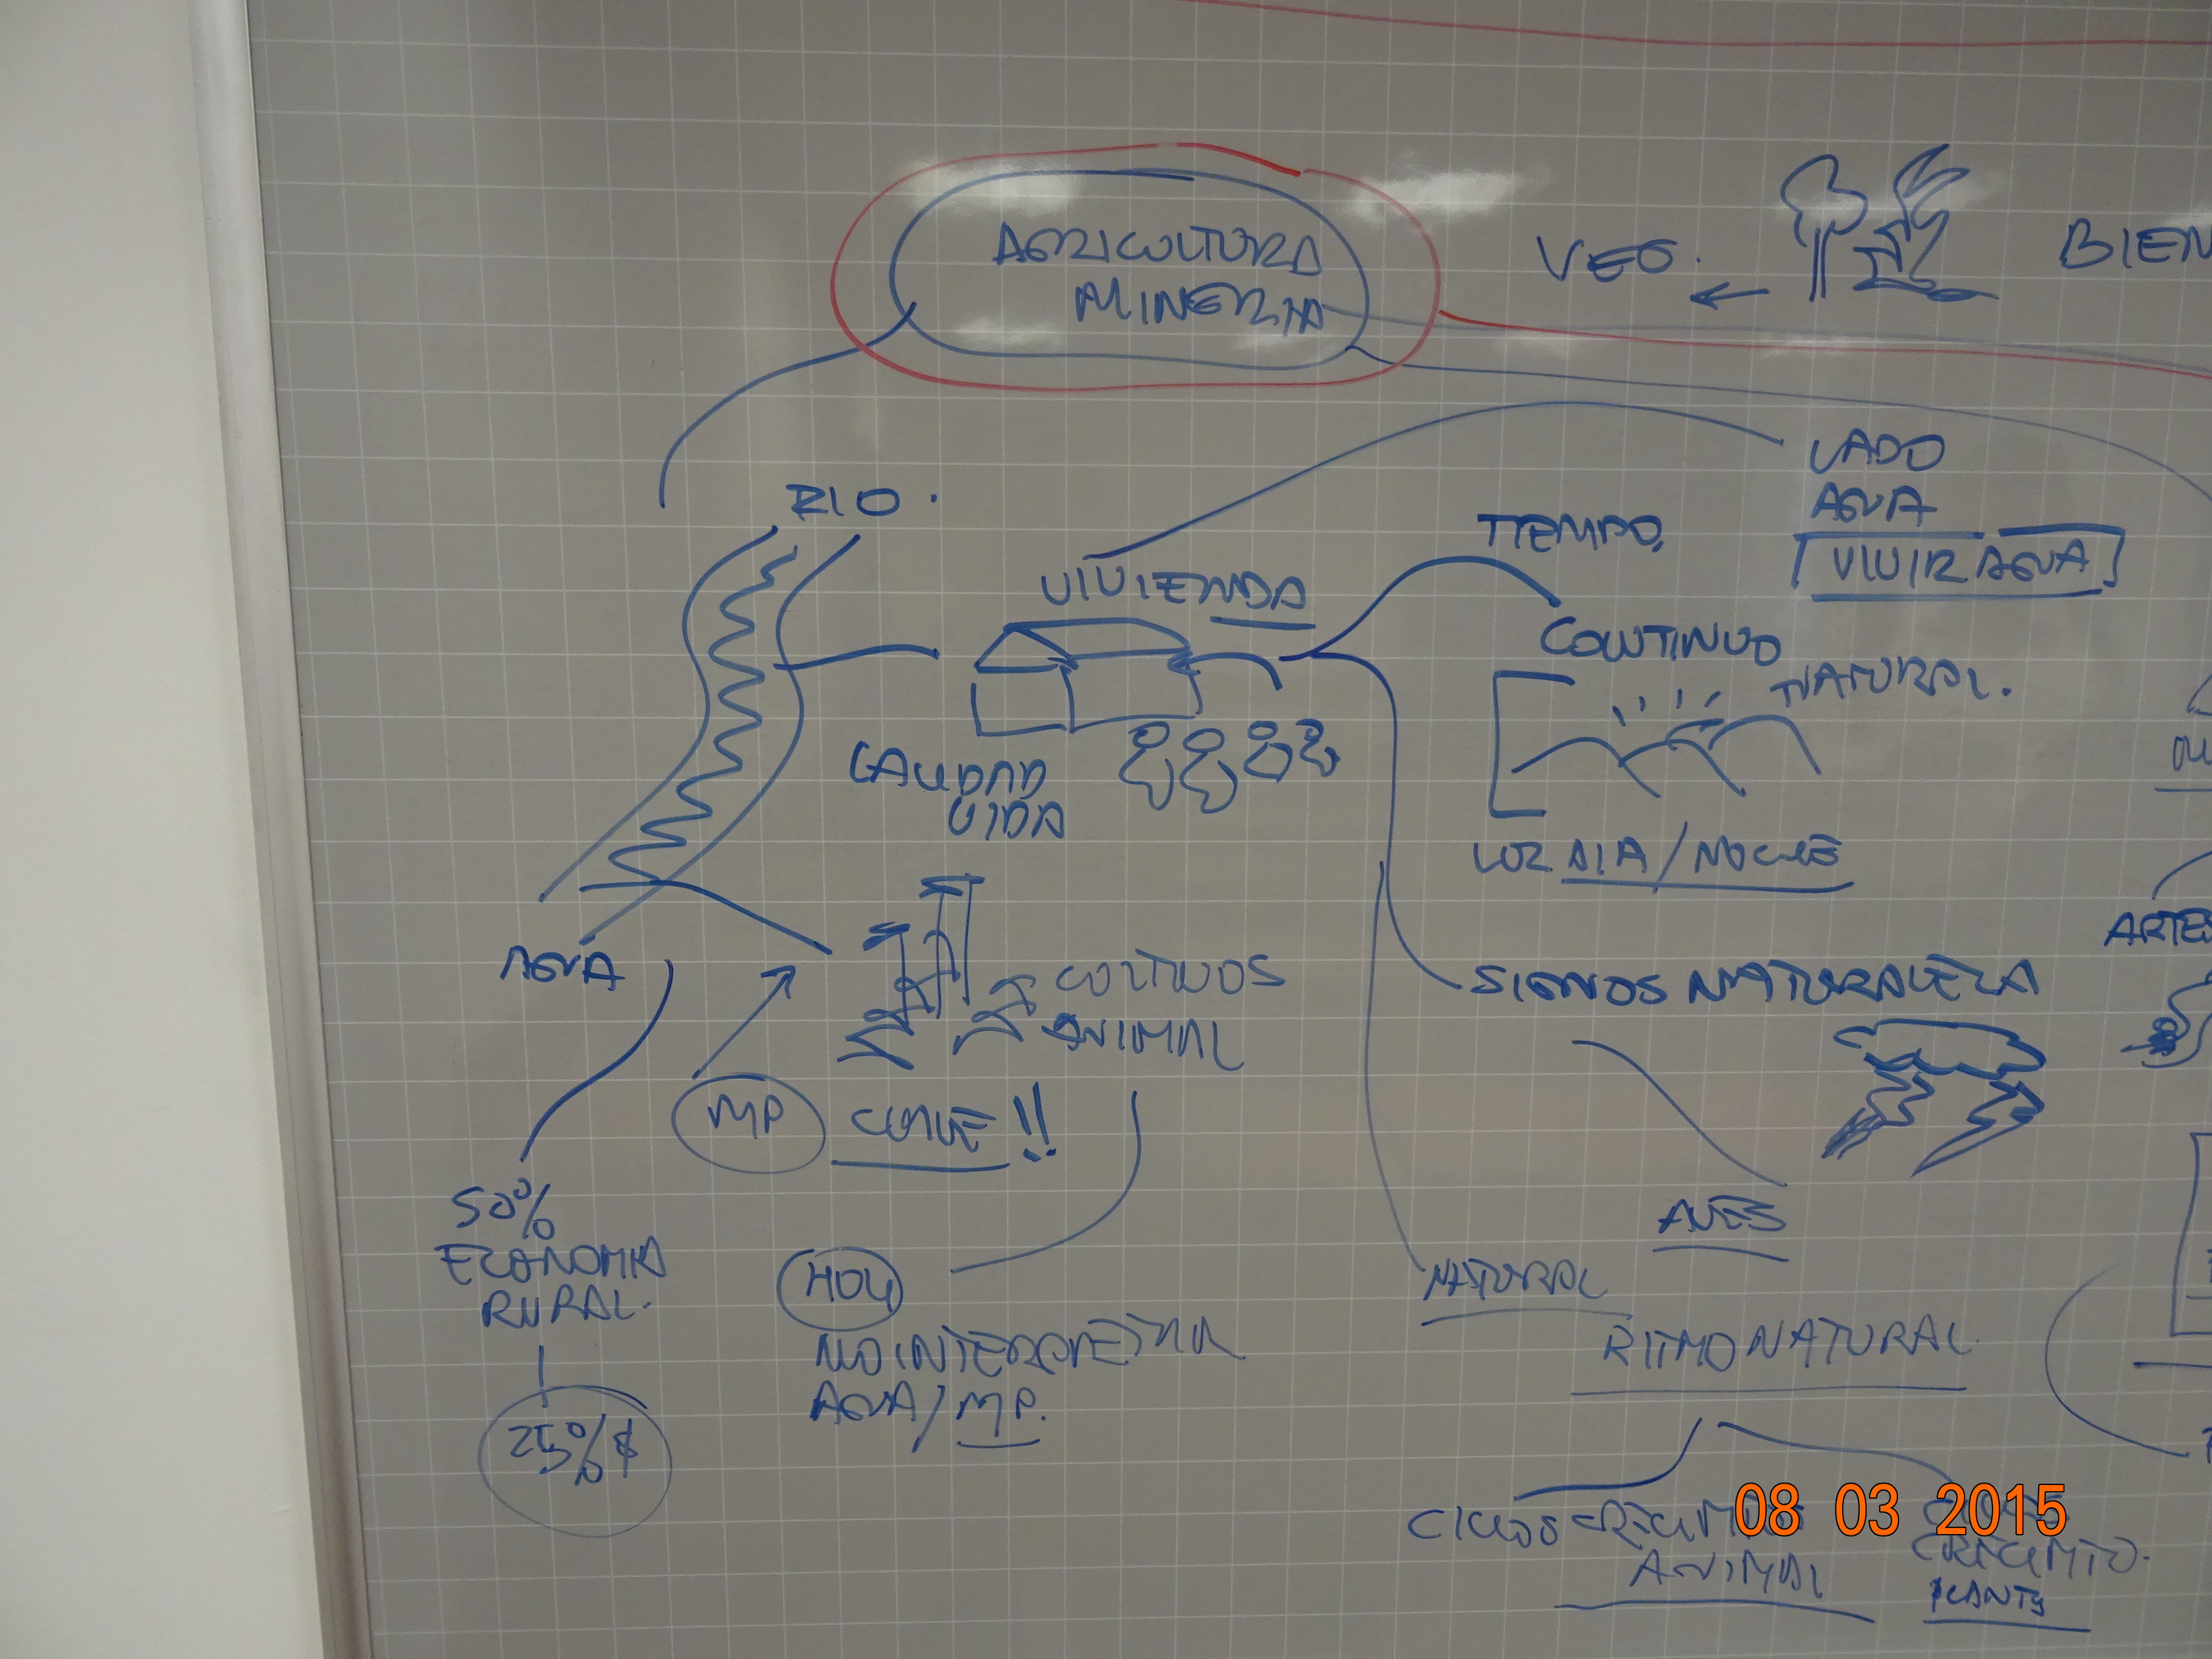 AGRICULTURA
MINERIA
VEG.
BIEN
RIO.
LADO
AGUA
VIVIR AGUA
TIEMPO
VIVIENDA
CONTINUO
NATURAL.
CALIDAD
VIDA
LUZ DIA/NOCHE
ARTES
AGUA
CULTIVOS
ANIMAL
SIGNOS NATURALEZA
MP
CLAVE!!
50%
ECONOMIA
RURAL.
AVES
HOY
NATURAL
NO INTERPRETAN
AGUA/MP.
RITMO NATURAL
25%
CICLOS
ANIMAL
CRECIMTO.
PLANTS
08 03 2015